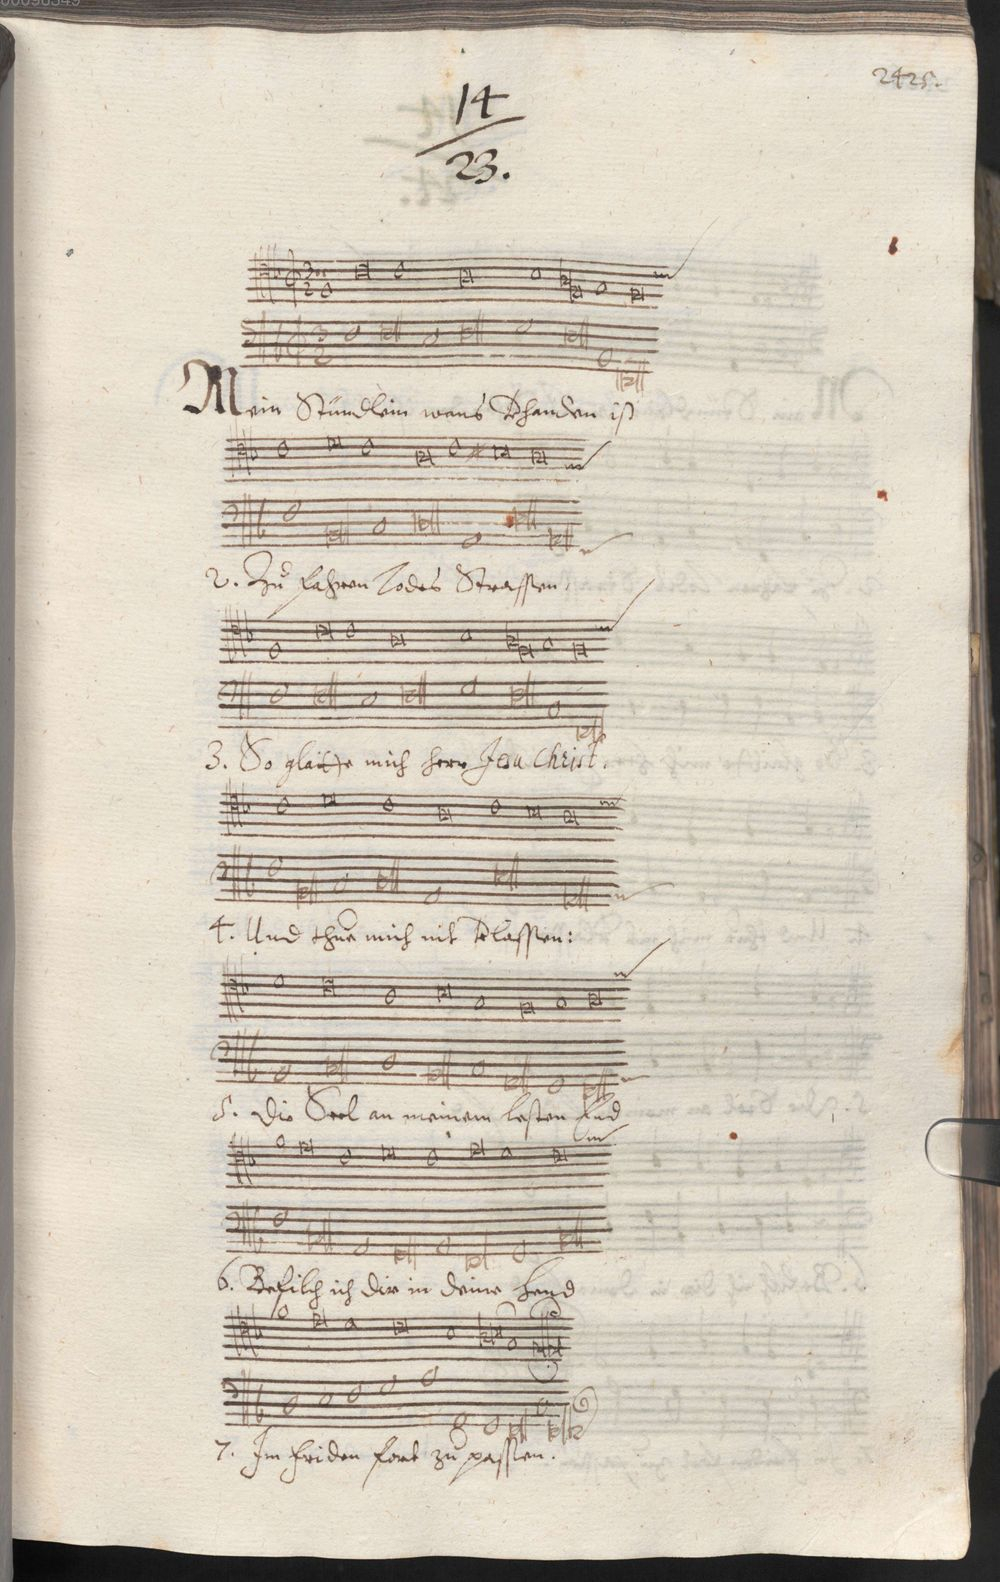 2425.
14
23.
Mein Stündlein wans Vhanden ist
2. Zu fahren Todes Strassen.
3. So glaitte mich herr Jesu Christ.
4. Und thue mich nit Vlassen:
5. Die Seel an meinem lesten End
6. Befilch ich dir in deine hend
7. Im friden fort zu passen.